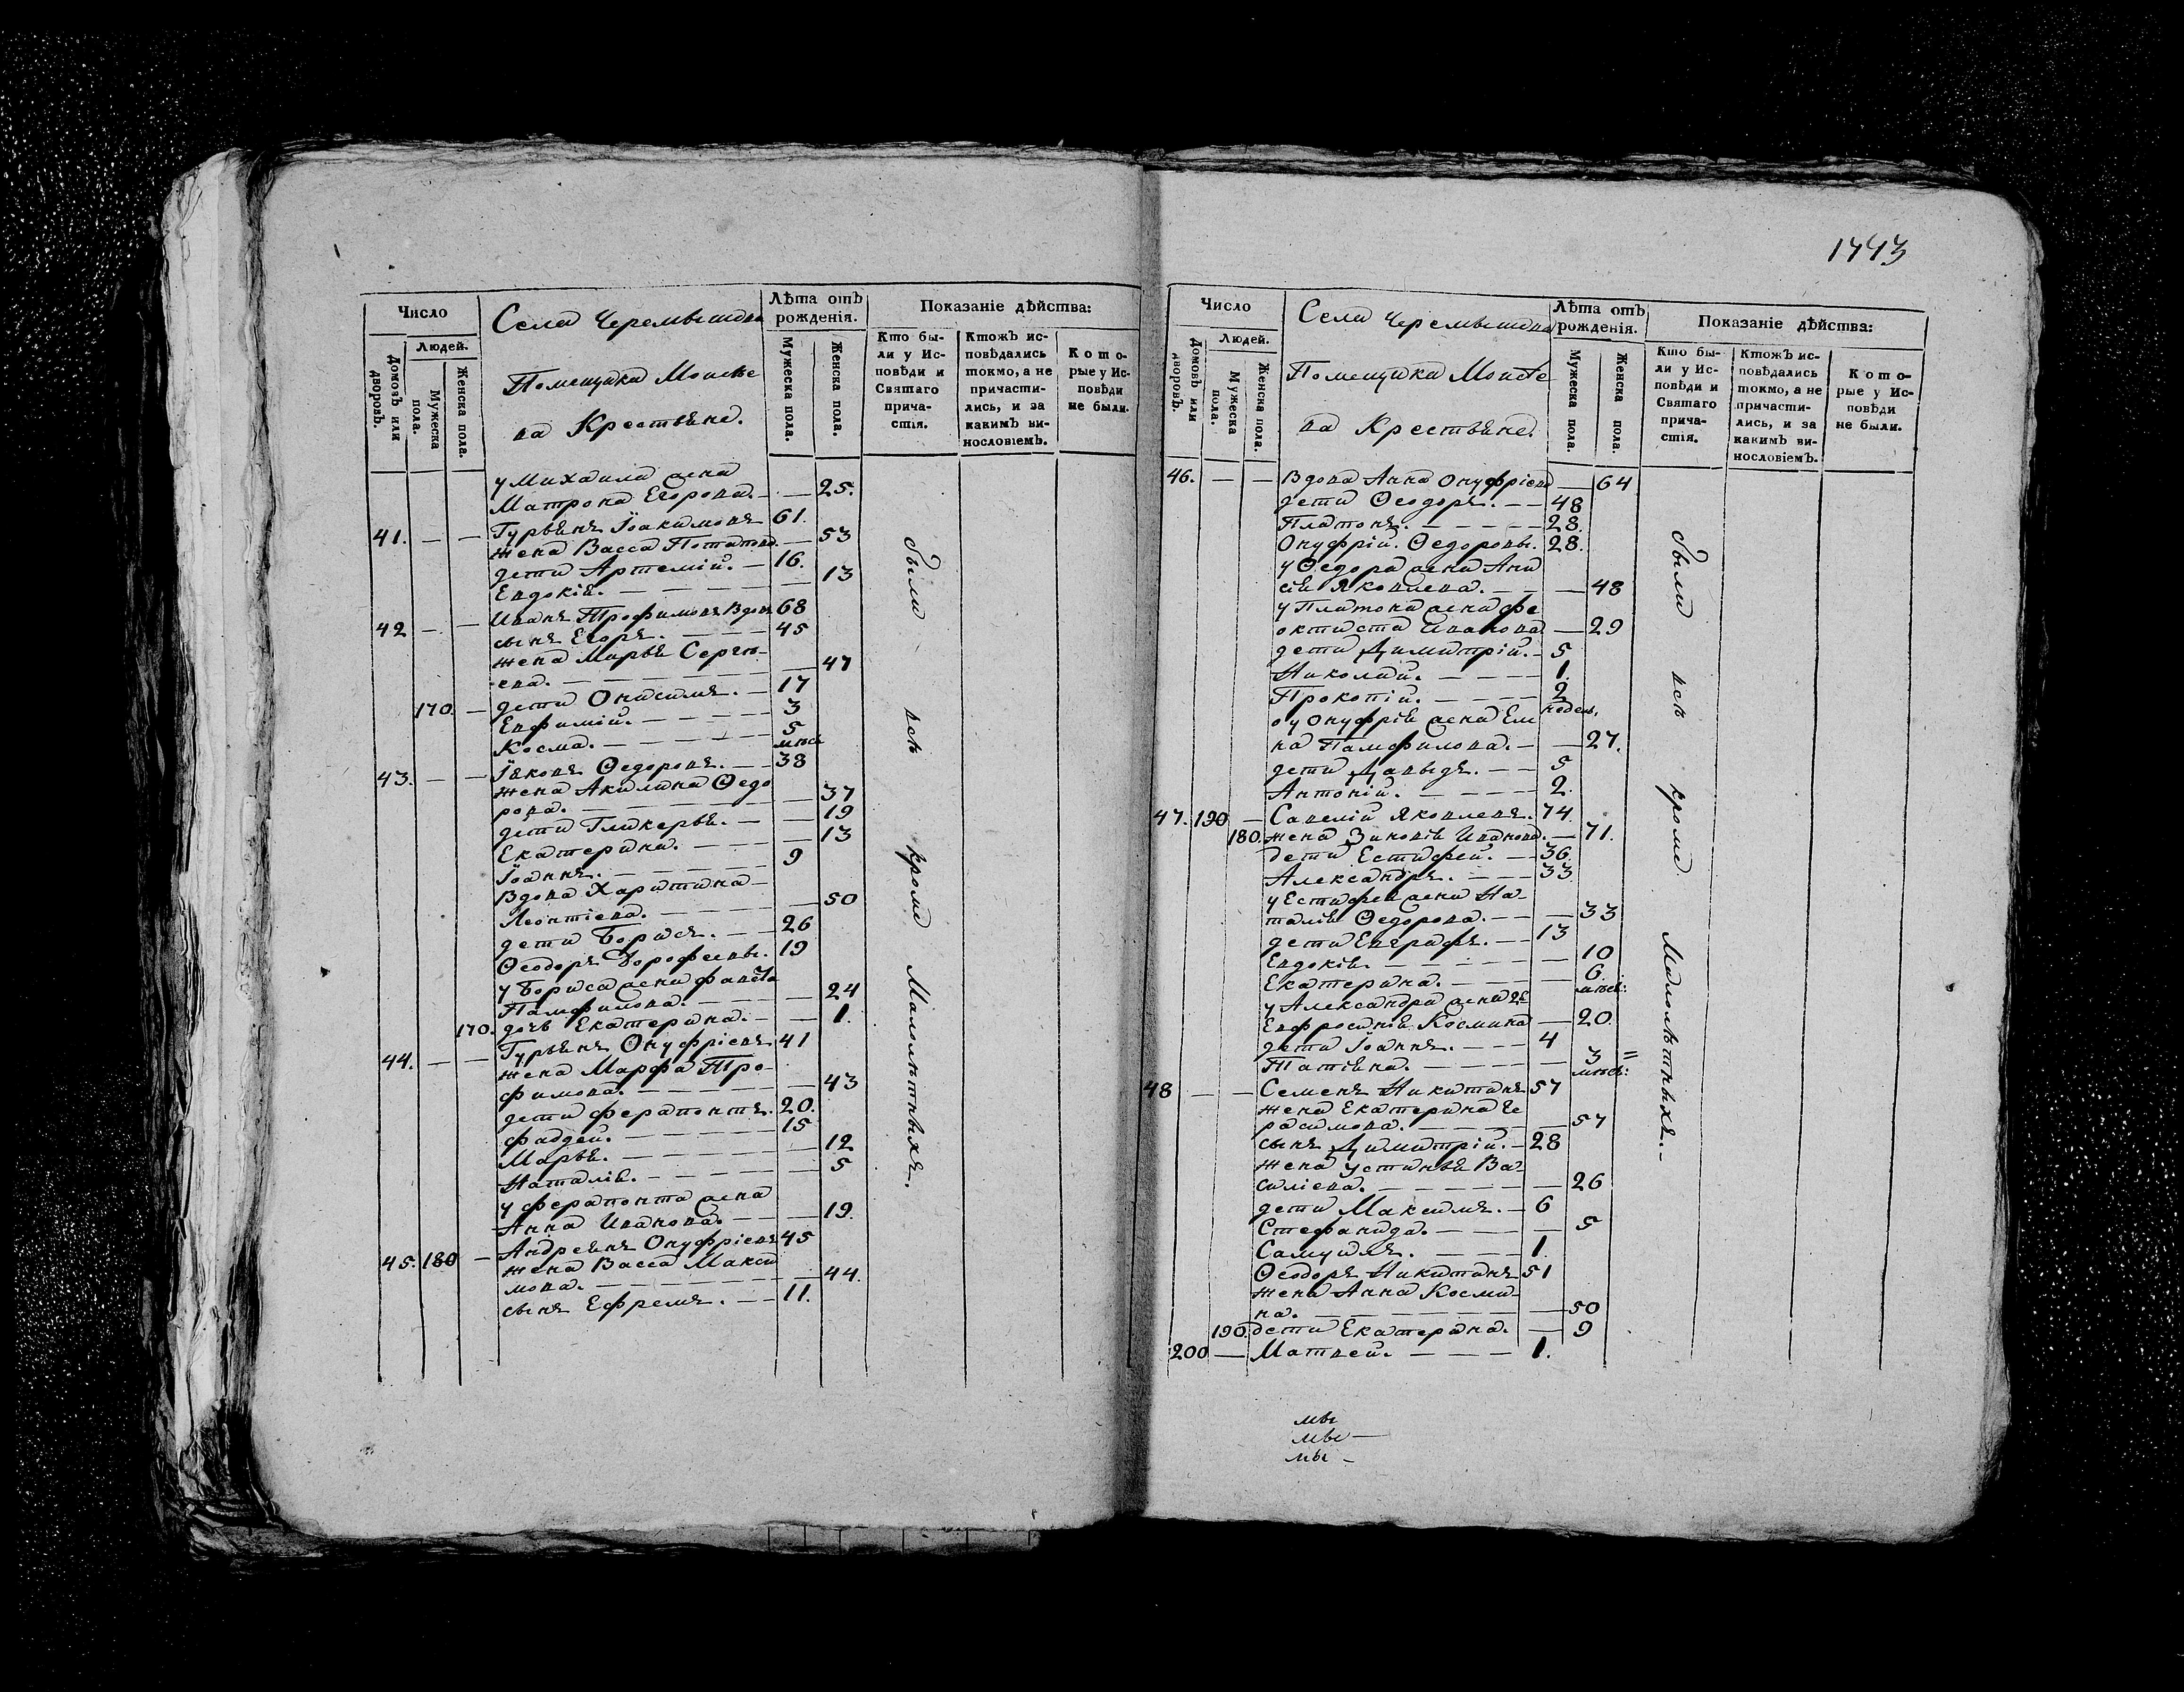 1743
Число
Людей.
Домовъ или дворовъ.
Мужеска пола.
Женска пола.
Села Черемышева
Помещика Моисѣе
ва Крестьяне.
Лѣта отъ рожденія.
Мужеска пола.
Женска пола.
Показаніе дѣйства:
Кто бы-
ли у Ис-
повѣди и
Святаго
прича-
стія.
Ктожъ ис-
повѣдались
токмо, а не
причасти-
лись, и за
какимъ ви-
нословіемъ.
Кото-
рые у Ис-
повѣди
не были.
у Михаила жена
Матрона Егорова. — — 25.
41. — — Гурьянъ Іоакимовъ 61.
жена Васса Потапова. — 53
дети Артемій. — 16.
Евдокія. — — — — — 13
42 — — Иванъ Трофимовъ Вдовъ 68
сынъ Егоръ. — — — 45
жена Марья Сергѣ-
ева. — — — — — 47
170. — дети Онисимъ. — 17
Евфимій. — — — — 3
Косма. — — — — 5 мѣся
43. — — Іяковъ Ѳедоровъ. — — 38
жена Акилина Ѳедо
рова. — — — — — 37
дети Гликерья. — — 19
Екатерина. — — — — 13
Іоаннъ. — — — — 9
Вдова Харитина —
Леонтіева. — — — — 50
дети Борисъ. — — 26
Ѳеодоръ Дорофеевы. 19
у Бориса жена
Памфилова. — — — — 24
170. дочь Екатерина. — — 1.
44. — — Гурьянъ Онуфріевъ 41
жена Марфа Тро-
фимова. — — — — — 43
дети Ферапонтъ. 20.
Фаддей. — — — — 15
Марья. — — — — — 12
Наталія. — — — — 5
у Ферапонта жена
Анна Иванова. — — — 19.
45. 180 — Андреянъ Онуфріевъ 45
жена Васса Макси
мова. — — — — — 44.
сынъ Ефремъ. — — 11.
были всѣ кромѣ Малолѣтныхъ.
Число
Людей.
Домовъ или дворовъ.
Мужеска пола.
Женска пола.
Села Черемышева
Помещика Моисѣе
ва Крестьяне.
Лѣта отъ рожденія.
Мужеска пола.
Женска пола.
Показаніе дѣйства:
Кто бы-
ли у Ис-
повѣди и
Святаго
прича-
стія.
Ктожъ ис-
повѣдались
токмо, а не
причасти-
лись, и за
какимъ ви-
нословіемъ.
Кото-
рые у Ис-
повѣди
не были.
46. — — Вдова Анна Онуфріева — 64
дети Ѳеодоръ. — — 48
Платонъ. — — — — 28.
Онуфрій. Ѳедоровы. 28.
у Ѳедора жена Ани
сія Яковлева. — — — 48
у Платона жена Фе
октиста Иванова — 29
дети Димитрій. — 5
Николай. — — — — 1.
Прокопій. — — — — 2 недель,
у Онуфрія жена Еле
на Памфилова. — — 27.
дети Давыдъ. — — 5
Антоній. — — — — 2.
47. 190 — Савелій Яковлевъ. 74.
180. жена Зиновія Иванова. — 71.
дети Естифей. — 36.
Александръ. — — — 33.
у Естифея жена На-
талія Ѳедорова. — — — 33
дети Евграфъ. — — 13
Евдокія. — — — — — 10
Екатерина. — — — — 6. мѣся:
у Александра жена
Евфросинія Космина — 20.
дети Іоаннъ. — — — 4
Татіяна. — — — — — 3 = мѣся:
48 — — Семенъ Никитинъ 57
жена Екатерина Ге
расимова. — — — — 57
сынъ Димитрій. — 28
жена Устинья Ва-
силіева. — — — — — 26
дети Максимъ. — 6
Стефанида. — — — — 5
Самуилъ. — — — — 1.
Ѳеодоръ Никитинъ 51
жена Анна Косми-
на. — — — — — — 50
190. дети Екатерина. — 9
200 — Матвей. — — — — 1.
были всѣ кромѣ Малолѣтныхъ. —
мы
мы —
мы —